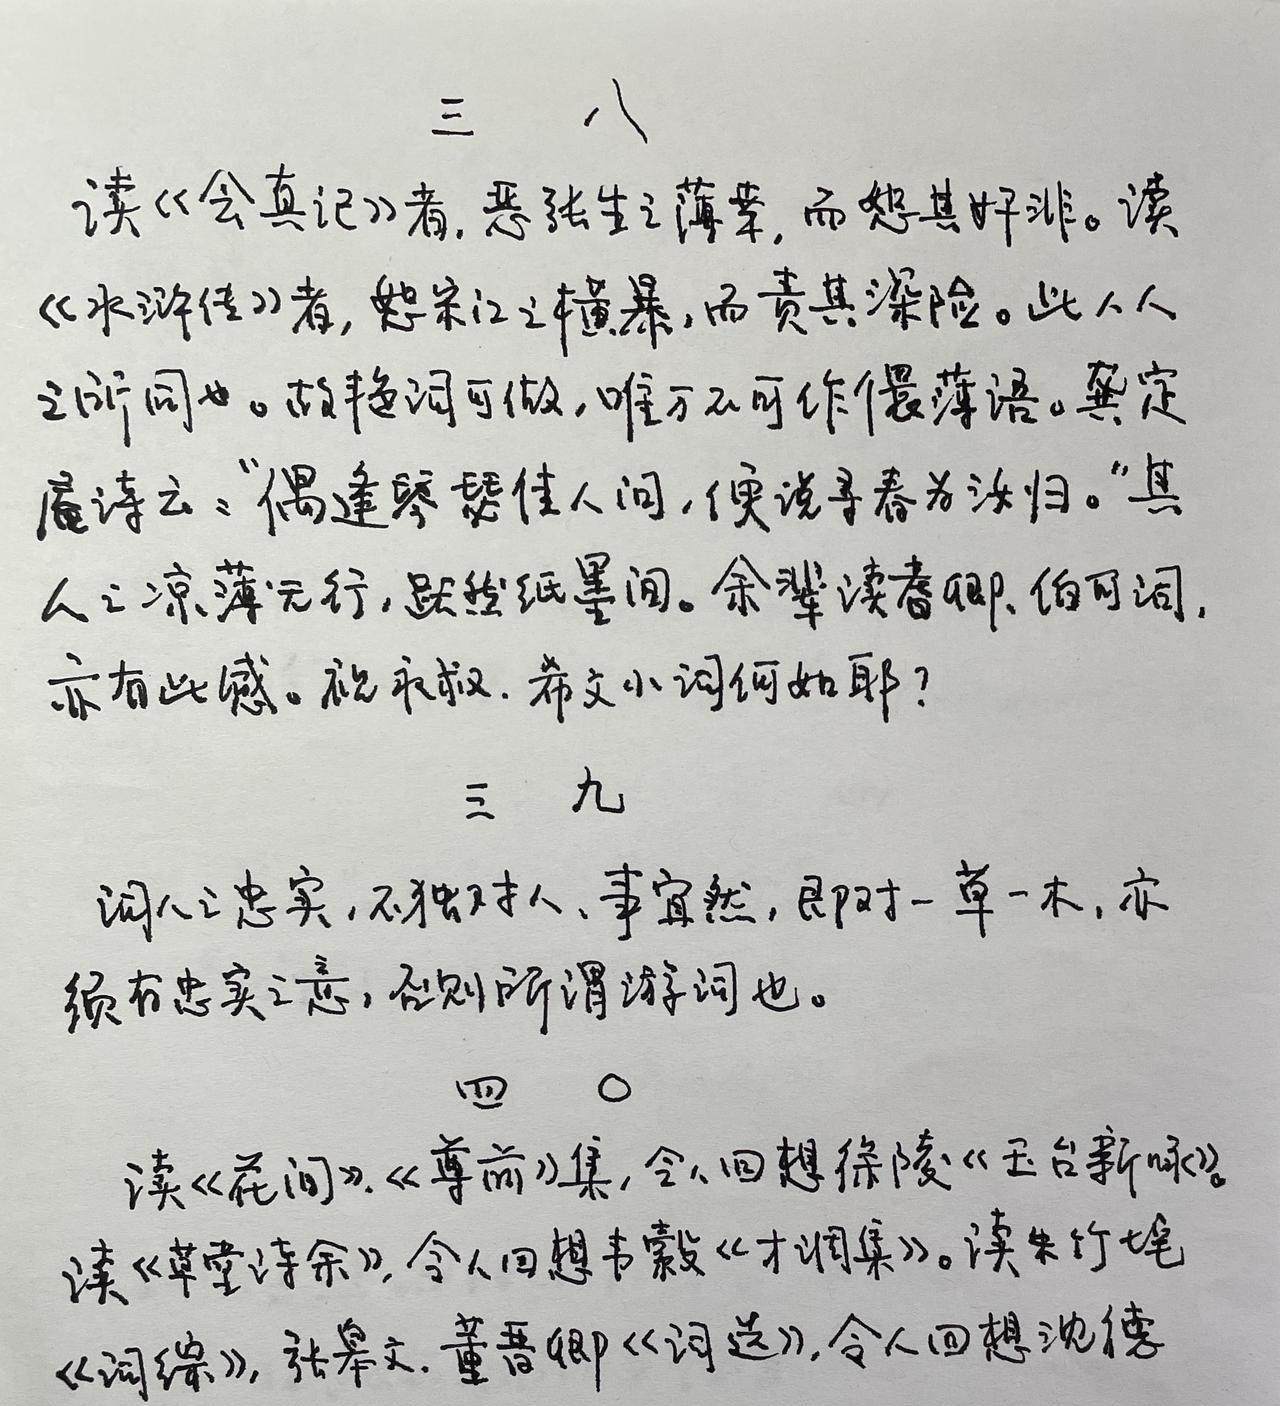 三 八
读《会真记》者,恶张生之薄幸,而恕其奸非。读
《水浒传》者,恕宋江之横暴,而责其深险。此人人
之所同也。故艳词可做,唯万不可作儇薄语。龚定
庵诗云:“偶逢琴瑟佳人问,便说寻春为汝归。”其
人之凉薄无行,跃然纸墨间。余辈读耆卿、伯可词,
亦有此感。视永叔、希文小词何如耶?
三 九
词人之忠实,不独对人、事宜然,即对一草一木,亦
须有忠实之意,否则所谓游词也。
四 〇
读《花间》、《尊前》集,令人回想徐陵《玉台新咏》。
读《草堂诗余》,令人回想韦縠《才调集》。读朱竹垞
《词综》,张皋文、董晋卿《词选》,令人回想沈德